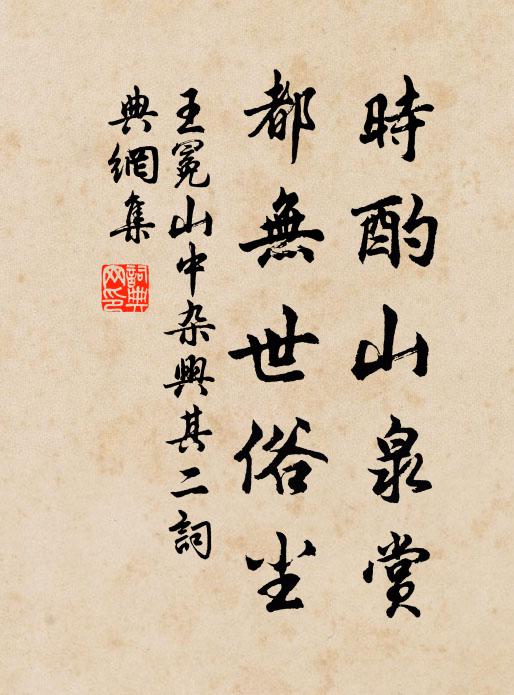 時酌山泉賞
都無世俗尘
王冕山中杂興其二詞
典網集
詞典
网印